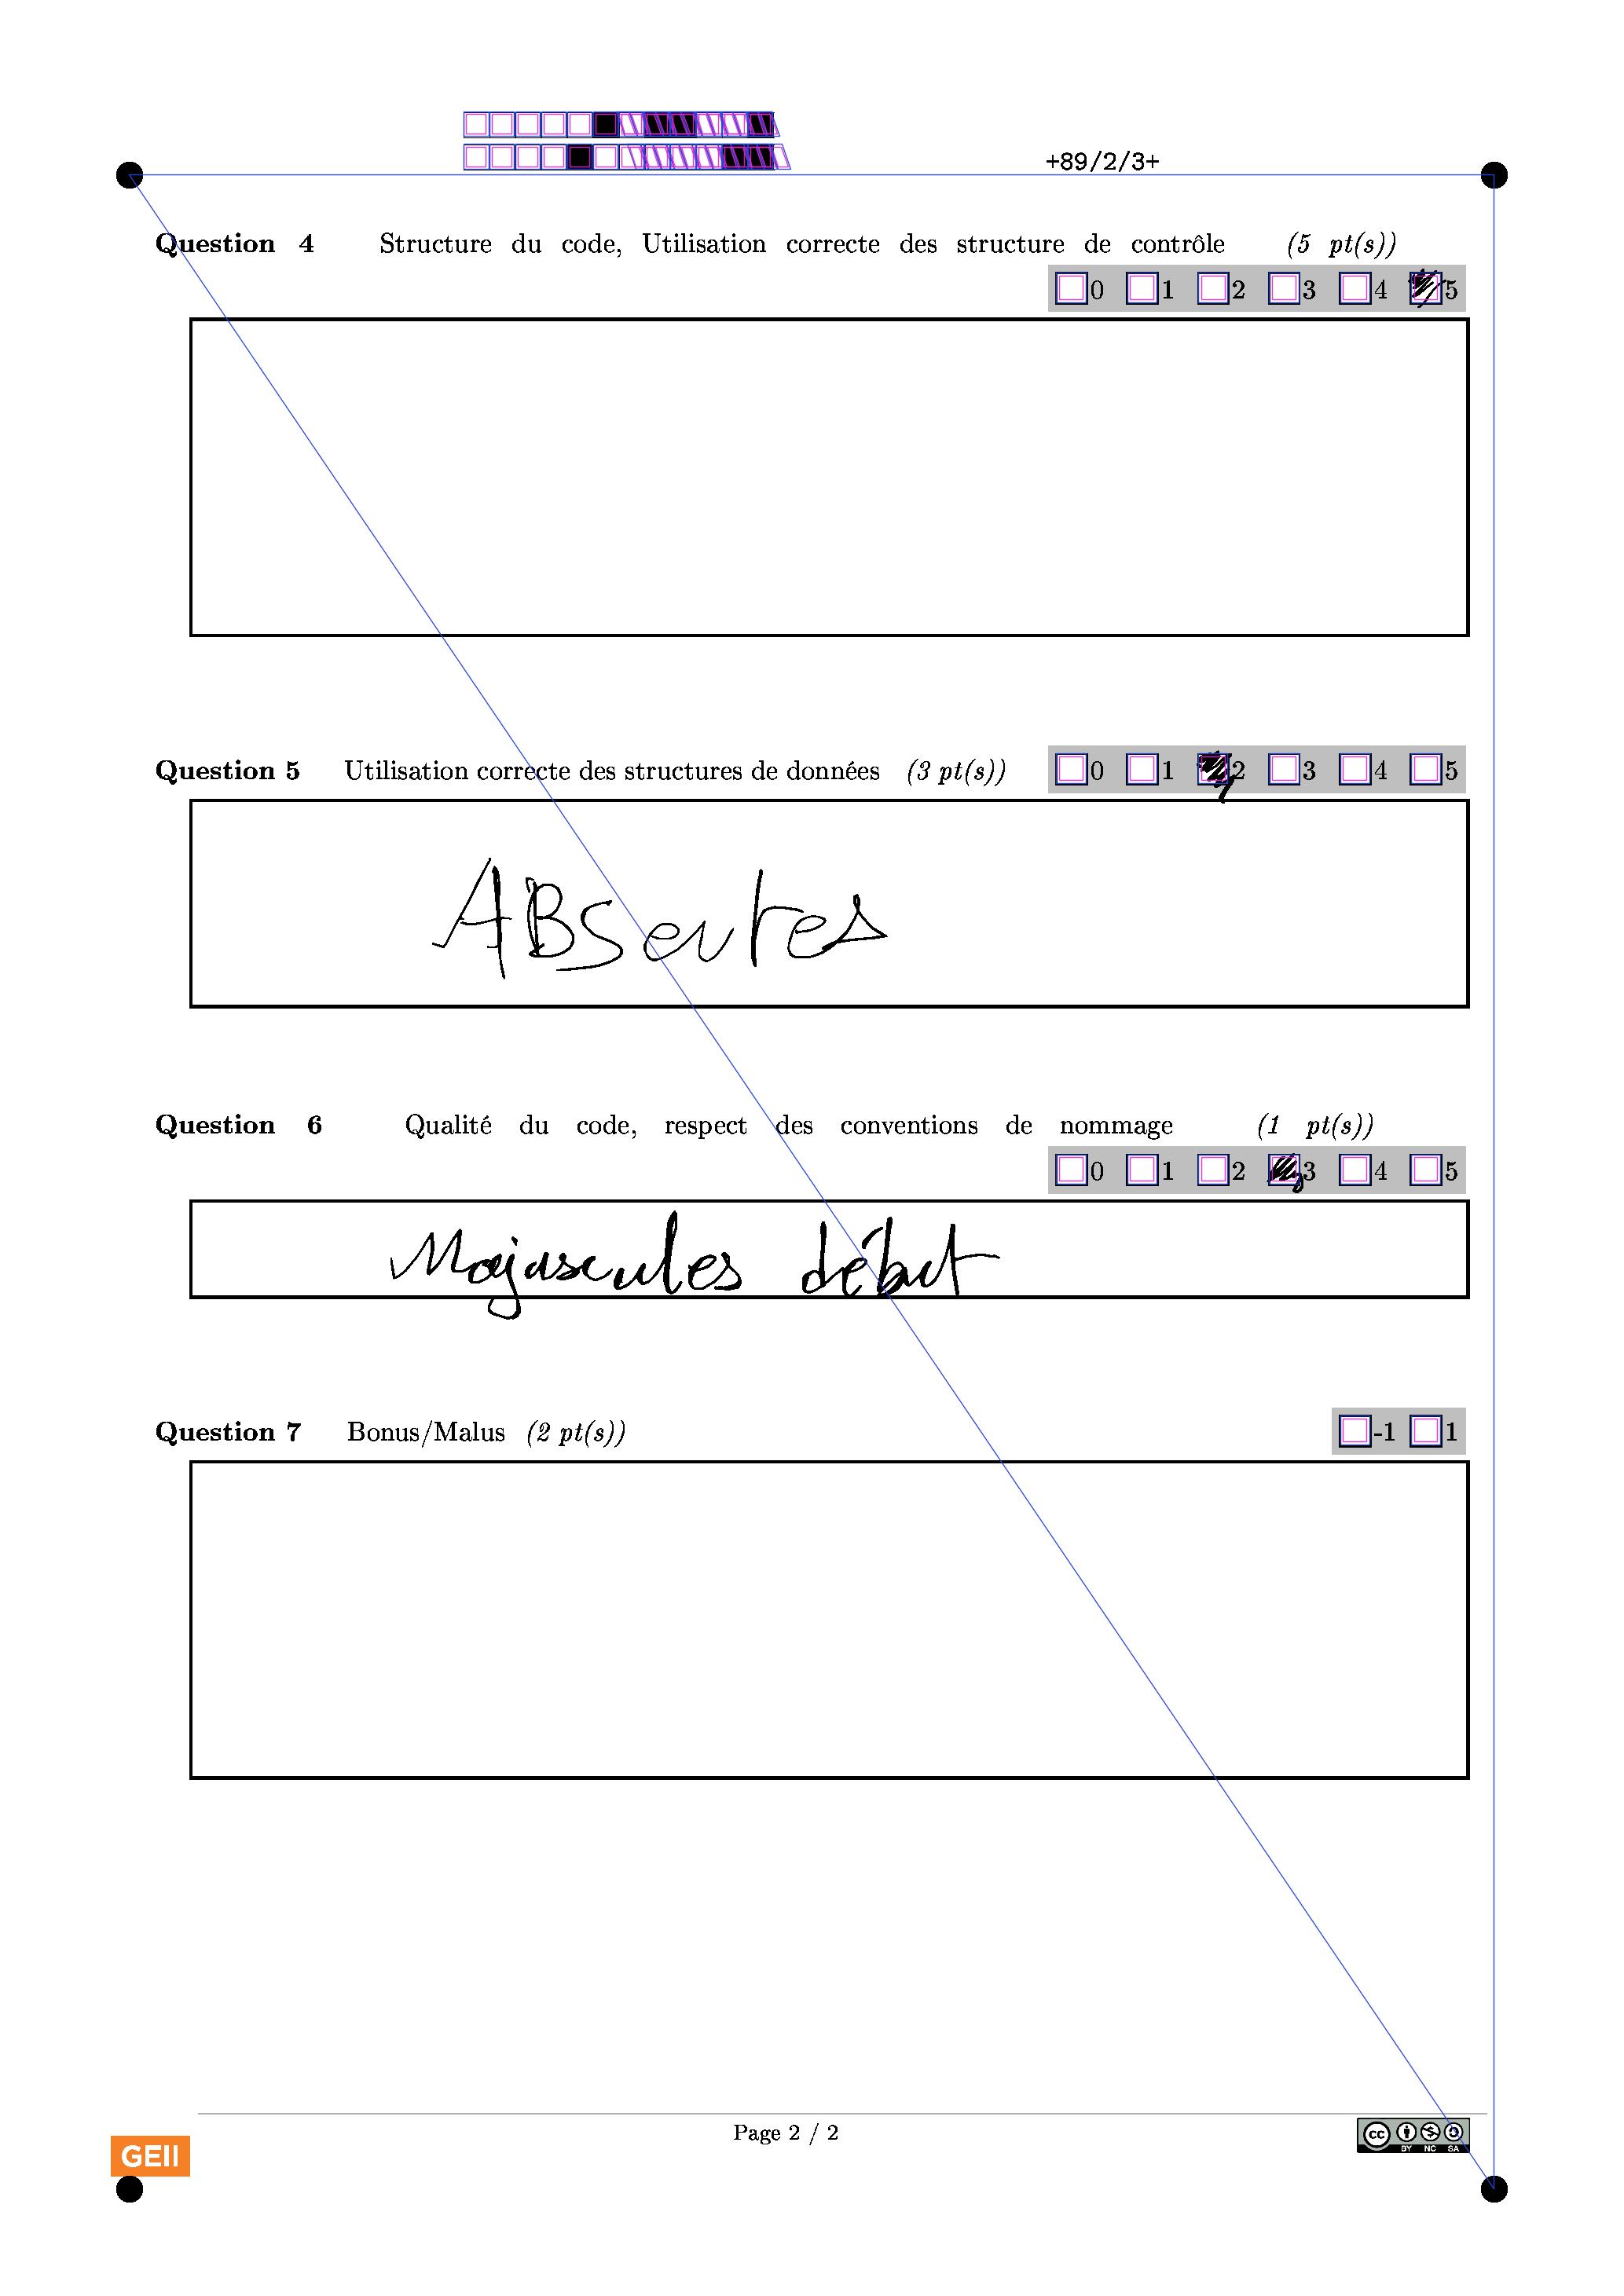 +89/2/3+
Question 4 Structure du code, Utilisation correcte des structure de contrôle (5 pt(s))
0 1 2 3 4 5
Question 5 Utilisation correcte des structures de données (3 pt(s)) 0 1 2 3 4 5
ABSentes
Question 6 Qualité du code, respect des conventions de nommage (1 pt(s))
0 1 2 3 4 5
Majuscules début
Question 7 Bonus/Malus (2 pt(s)) -1 1
Page 2 / 2
GEII
cc BY NC SA